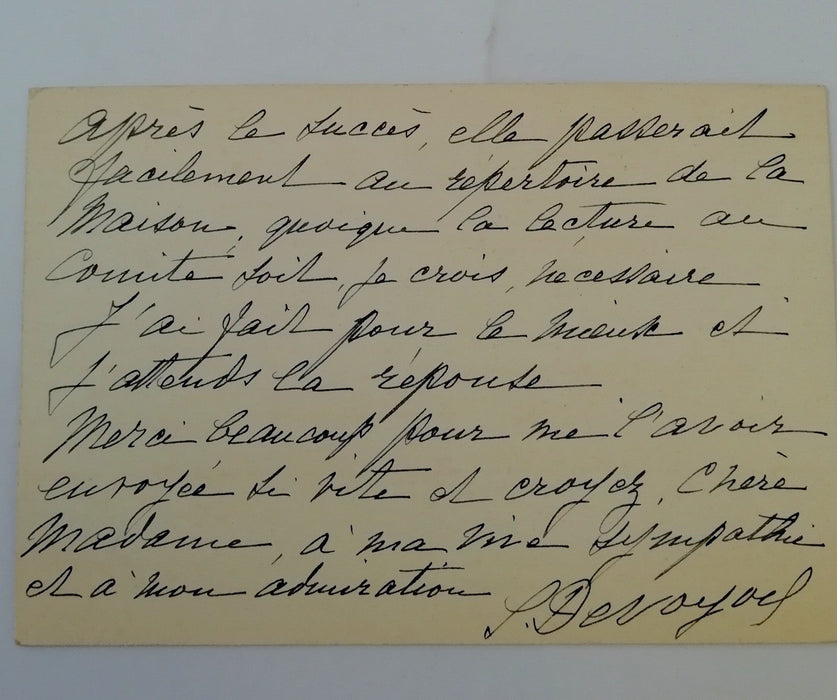 Après le succès, elle passerait
facilement au répertoire de la
Maison, quoique la lecture au
Comité soit, je crois, nécessaire
J'ai fait pour le mieux et
j'attends la réponse
Merci beaucoup pour me l'avoir
envoyée si vite et croyez, Chère
Madame, à ma vive sympathie
et à mon admiration
S. Devoyod